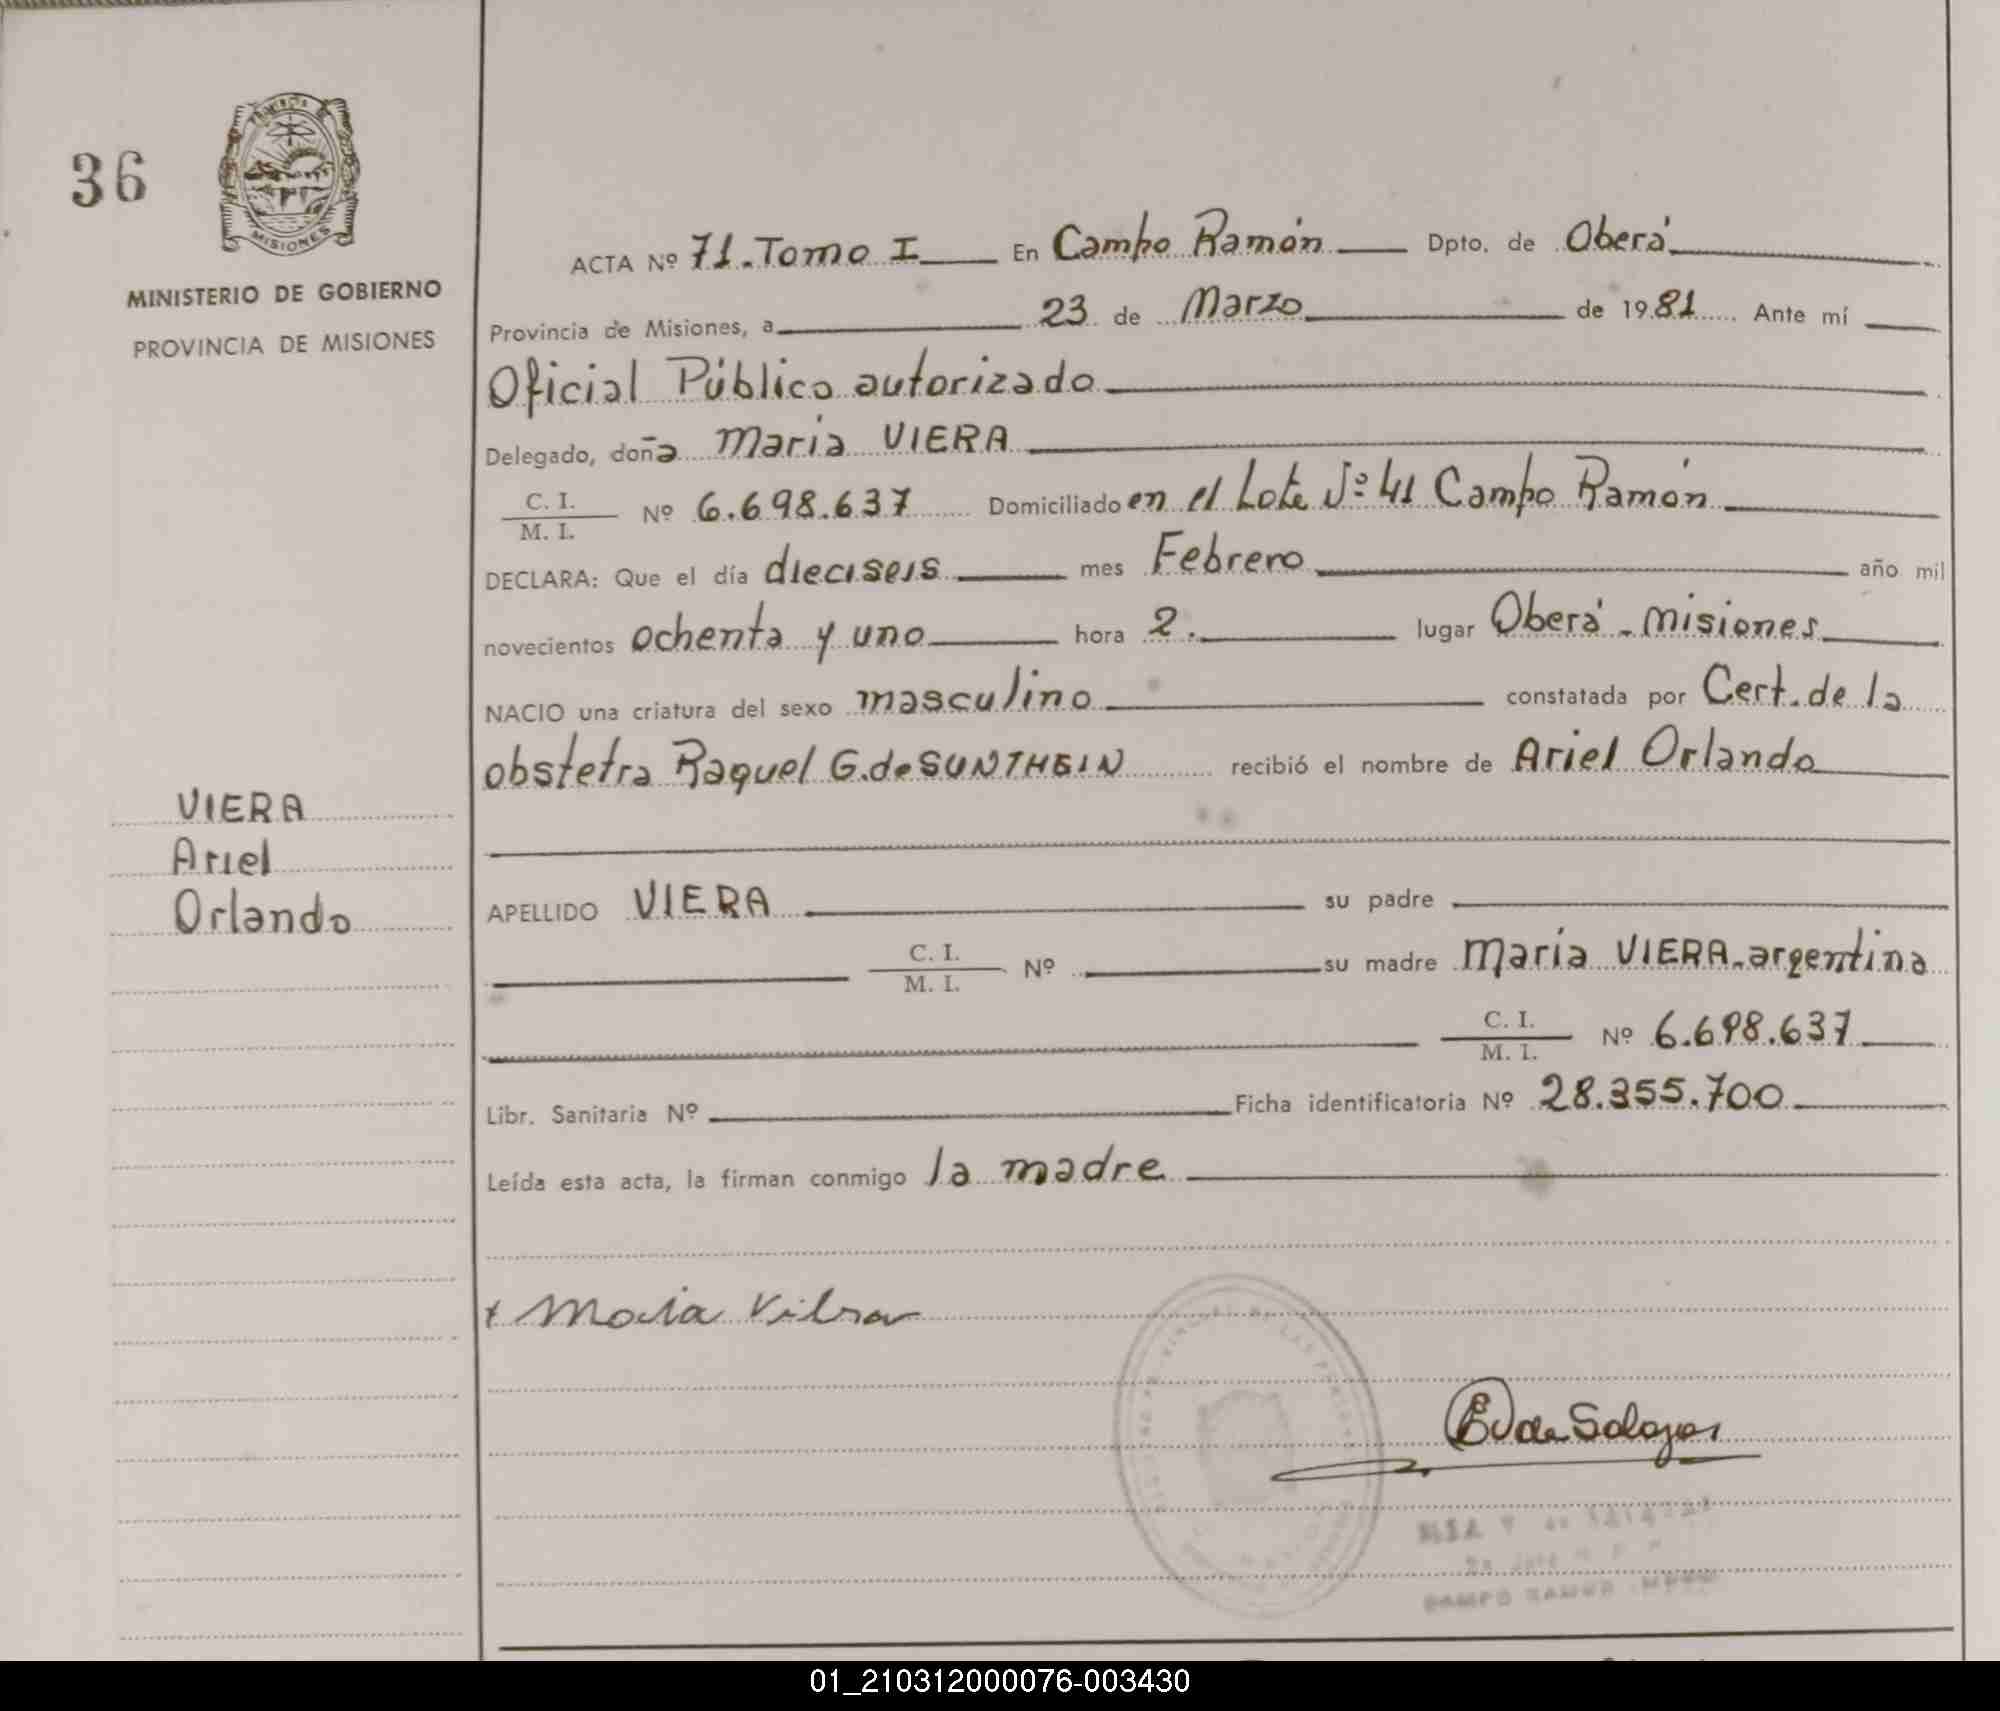 36
PROVINCIA DE
MISIONES
MINISTERIO DE GOBIERNO
PROVINCIA DE MISIONES
VIERA
Ariel
Orlando
ACTA Nº 71.Tomo I En Campo Ramón Dpto. de Oberá
Provincia de Misiones, a 23 de Marzo de 1981 Ante mí
Oficial Público autorizado
Delegado, doña Maria VIERA
C. I.
M. I.
Nº 6.698.637 Domiciliado en el Lote Nº 41 Campo Ramón
DECLARA: Que el día dieciseis mes Febrero año mil
novecientos ochenta y uno hora 2. lugar Oberá - Misiones
NACIO una criatura del sexo masculino constatada por Cert. de la
obstetra Raquel G. de SUNTHEIN recibió el nombre de Ariel Orlando
APELLIDO VIERA su padre
C. I.
M. I.
Nº su madre Maria VIERA-argentina
C. I.
M. I.
Nº 6.698.637
Libr. Sanitaria Nº Ficha identificatoria Nº 28.355.700
Leída esta acta, la firman conmigo la madre
Maria
de Salazar
CAMPO RAMON
01_210312000076-003430